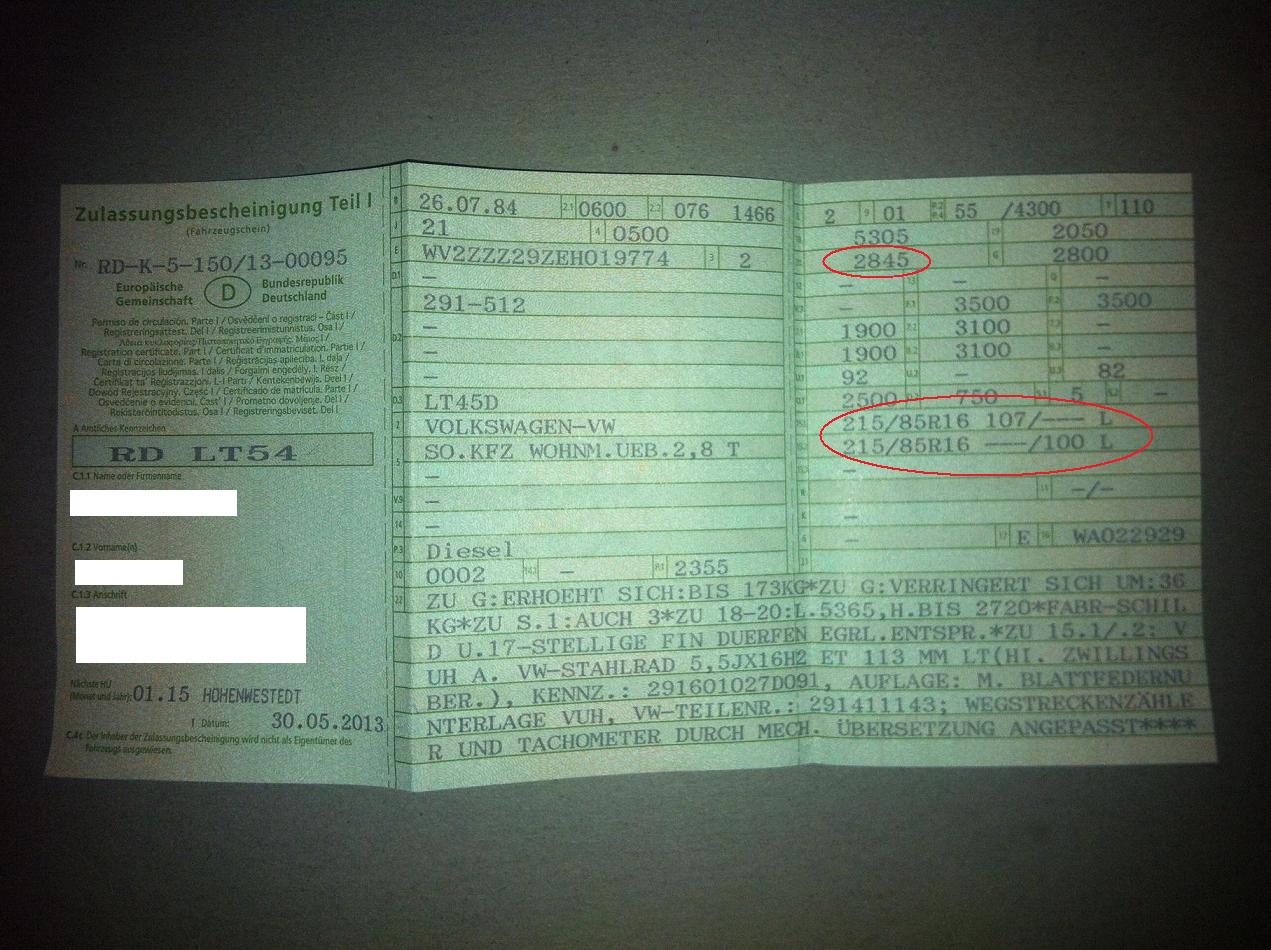 Zulassungsbescheinigung Teil I
(Fahrzeugschein)
Nr. RD-K-5-150/13-00095
Europäische Gemeinschaft D Bundesrepublik Deutschland
Permiso de circulación. Parte I / Osvědčení o registraci – Část I /
Registreringsattest. Del I / Registreerimistunnistus. Osa I /
Registration certificate. Part I / Certificat d'immatriculation. Partie I /
Carta di circolazione. Parte I / Reģistrācijas apliecība. I. daļa /
Registracijos liudijimas. I dalis / Forgalmi engedély. I. Rész /
Ċertifikat ta' Reġistrazzjoni. L-I Parti / Kentekenbewijs. Deel I /
Dowód Rejestracyjny. Część I / Certificado de matrícula. Parte I /
Osvedčenie o evidencii. Časť I / Prometno dovoljenje. Del I /
Rekisteröintitodistus. Osa I / Registreringsbeviset. Del I
A Amtliches Kennzeichen
RD LT54
C.1.1 Name oder Firmenname
C.1.2 Vorname(n)
C.1.3 Anschrift
Nächste HU
(Monat und Jahr): 01.15 HOHENWESTEDT
I Datum: 30.05.2013
C.4c Der Inhaber der Zulassungsbescheinigung wird nicht als Eigentümer des
Fahrzeugs ausgewiesen.
B 26.07.84 2.1 0600 2.2 076 1466
J 21 4 0500
E WV2ZZZ29ZEH019774 3 2
D.1 –
291-512
–
D.2 –
–
D.3 LT45D
2 VOLKSWAGEN-VW
5 SO.KFZ WOHNM.UEB.2,8 T
–
V.9 –
14 –
P.3 Diesel
10 0002 14.1 – P.1 2355
2 9 01 P.2 P.4 55 /4300 T 110
18 5305 19 2050
20 2845 G 2800
12 – 13 – Q –
– F.1 3500 F.2 3500
1900 7.2 3100 7.3 –
1900 8.2 3100 8.3 –
U.1 92 U.2 – U.3 82
O.1 2500 O.2 750 S.1 5 S.2 –
215/85R16 107/--- L
215/85R16 ---/100 L
–
R – 11 -/-
K –
6 – 17 E 16 WA022929
21
22 ZU G:ERHOEHT SICH:BIS 173KG*ZU G:VERRINGERT SICH UM:36
KG*ZU S.1:AUCH 3*ZU 18-20:L.5365,H.BIS 2720*FABR-SCHIL
D U.17-STELLIGE FIN DUERFEN EGRL.ENTSPR.*ZU 15.1/.2: V
UH A. VW-STAHLRAD 5,5JX16H2 ET 113 MM LT(HI. ZWILLINGS
BER.), KENNZ.: 291601027D091, AUFLAGE: M. BLATTFEDERNU
NTERLAGE VUH, VW-TEILENR.: 291411143; WEGSTRECKENZÄHLE
R UND TACHOMETER DURCH MECH. ÜBERSETZUNG ANGEPASST****